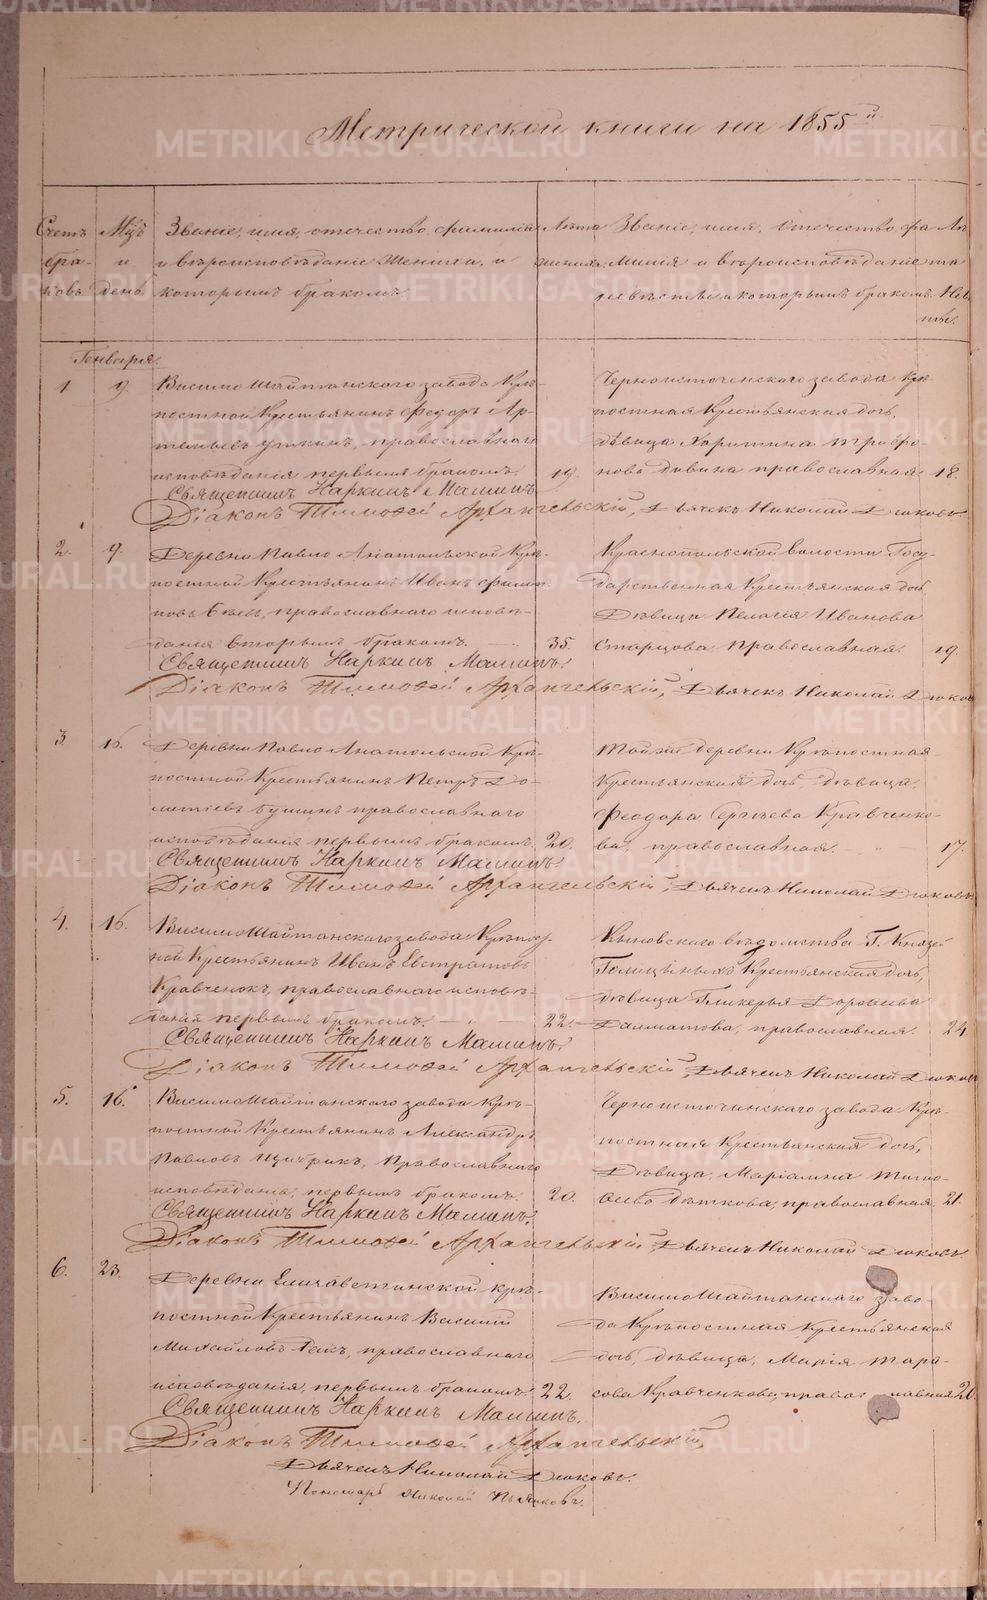 Метрической книги на 1855й
Счетъ
бра-
ковъ
Мцъ
и
день
Званіе, имя, отчество, фамилія
и вѣроисповѣданіе Жениха, и
которымъ бракомъ.
Лѣта
жениха
Званіе, имя, отчество, фа
милія и вѣроисповѣданіе
невѣсты и которымъ бракомъ.
Лѣ
та
Невѣ
сты.
Генваря
1 9. Висимо Шайтанскаго завода Крѣ-
постной Крестьянинъ Федоръ Ар-
темьевъ Уткинъ, православнаго
исповѣданія первымъ бракомъ 19.
Черноисточенскаго завода Крѣ-
постная Крестьянская дочь,
дѣвица Харитина Трофи
мова православная 18.
Священникъ Наркисъ Маминъ
Діаконъ Тимофей Архангельскій, Дьячекъ Николай Дюковъ
2. 9. Деревни Павло Анатольской Крѣ-
постной Крестьянинъ Иванъ Филип-
повъ православнаго исповѣ-
данія вторымъ бракомъ. 35.
Краснопольской волости Госу-
дарственная Крестьянская дочь
Дѣвица Пелагія Иванова
Старцова, Православная. 19.
Священникъ Наркисъ Маминъ.
Діаконъ Тимофей Архангельскій, Дьячекъ Николай Дюковъ
3. 16. Деревни Павло Анатольской Крѣ-
постной Крестьянинъ Петръ До-
метіевъ православнаго
исповѣданія первымъ бракомъ 20.
Той же деревни Крѣпостная
Крестьянская дочь, дѣвица
Феодора Сергѣева Кравченко-
ва, православная. 17.
Священникъ Наркисъ Маминъ
Діаконъ Тимофей Архангельскій, Дьячекъ Николай Дюковъ
4. 16. Висимо Шайтанскаго завода Крѣпост-
ной Крестьянинъ Иванъ Евстратовъ
Кравченокъ, православнаго исповѣ-
данія первымъ бракомъ. 22.
Кыновскаго вѣдомства Г. Князей
Голицыныхъ Крестьянская дочь,
дѣвица Гликерья
Далматова, православная. 24
Священникъ Наркисъ Маминъ.
Діаконъ Тимофей Архангельскій, Дьячекъ Николай Дюковъ
5. 16. Висимо Шайтанскаго завода Крѣ-
постной Крестьянинъ Александръ
Павловъ Православнаго
исповѣданія, первымъ бракомъ. 20.
Черноисточинскаго завода Крѣ-
постная Крестьянская дочь,
Дѣвица, Маріамна Тимо-
православная, 21.
Священникъ Наркисъ Маминъ.
Діаконъ Тимофей Архангельскій, Дьячекъ Николай Дюковъ
6. 23. Деревни Елисаветинской крѣ-
постной Крестьянинъ Василій
Михайловъ православнаго
исповѣданія, первымъ бракомъ. 22.
Висимо Шайтанскаго заво-
да Крѣпостная Крестьянская
дочь, дѣвица, Марія Тара-
сова Кравченкова, православная 20
Священникъ Наркисъ Маминъ.
Діаконъ Тимофей Архангельскій,
Дьячекъ Николай Дюковъ.
Пономарь
METRIKI.GASO-URAL.RU